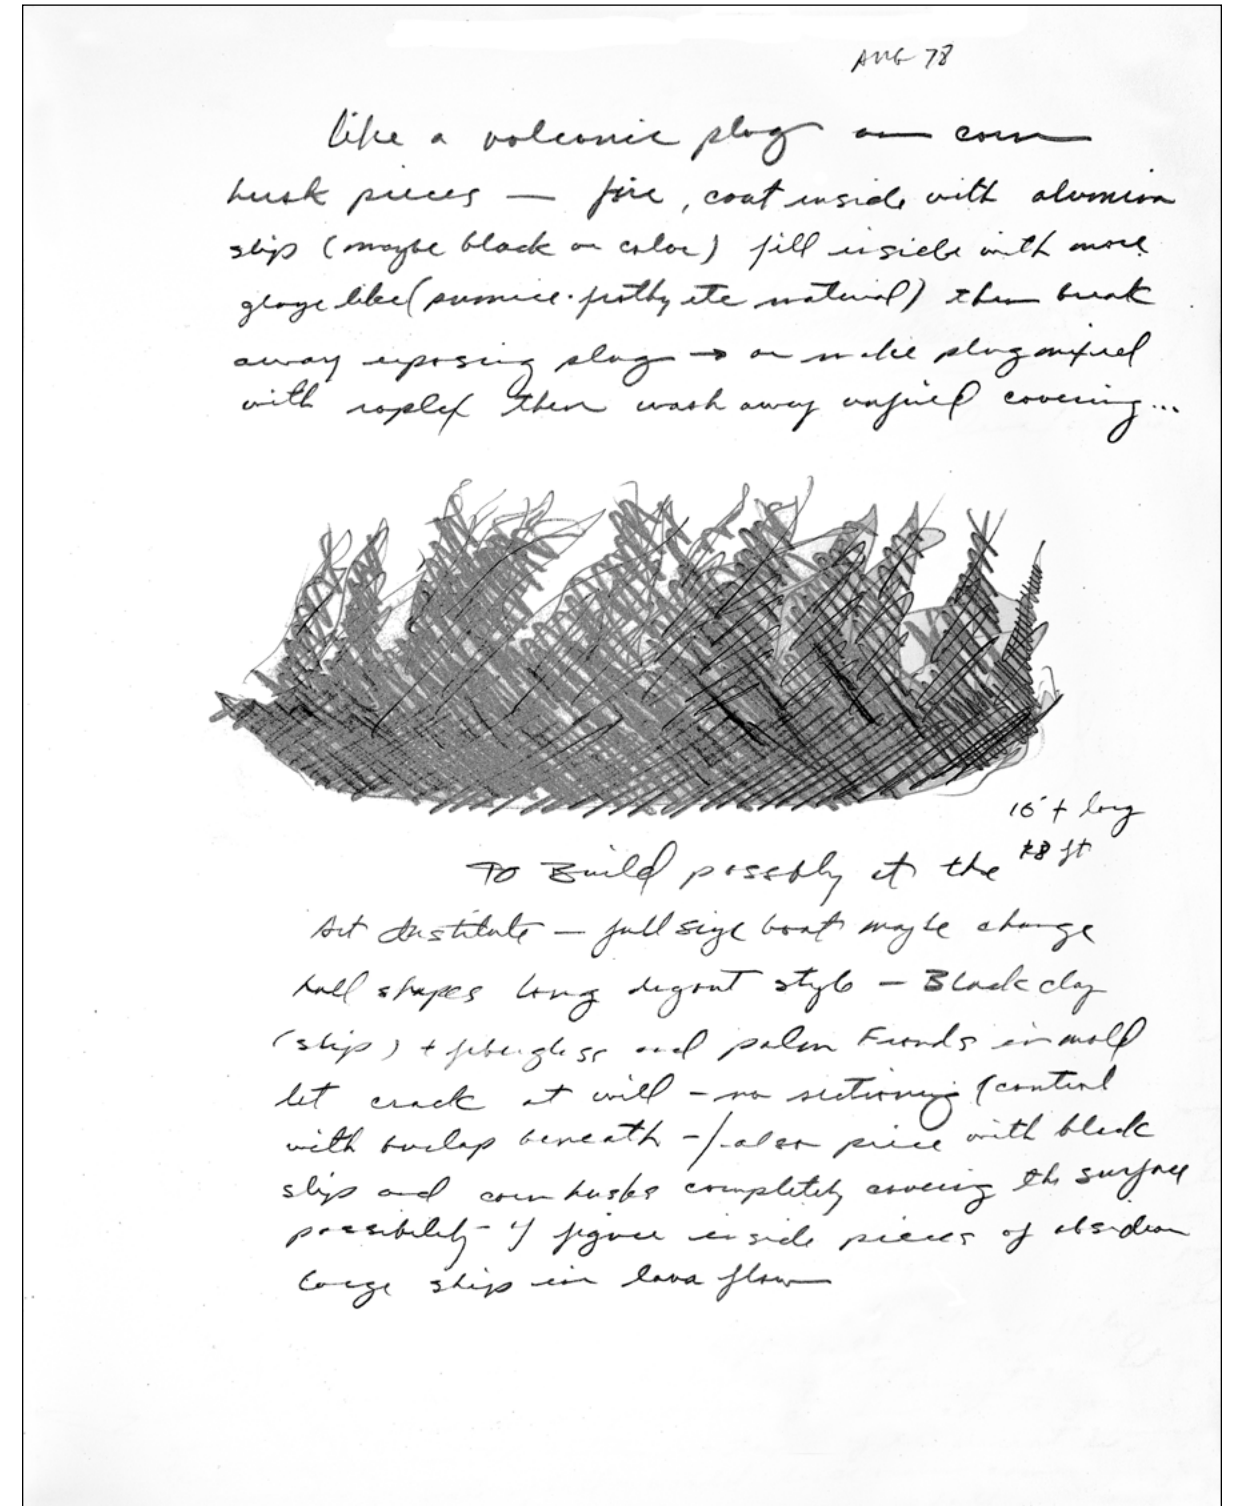 AUG 78
like a volcanic plug on corn
husk pieces — fire, coat inside with alumina
slip (maybe black or color) fill inside with more
glaze like (pumice-frothy etc material) then break
away exposing plug → or make plug mixed
with roplex then wash away unfired covering...
16' + long
8 ft
To Build possibly at the
Art Institute — full size boat maybe change
hull shapes long dugout style — Black clay
(slip) + fiberglass and palm Fronds in mold
let crack at will – no sectioning (control
with burlap beneath – / also piece with black
slip and corn husks completely covering the surface
possibility – of figure inside pieces of obsidian
large ship in lava flow